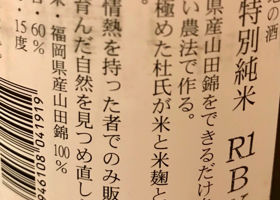 の酒
特別純米 R1BY
県産山田錦をできるだけ
い農法で作る。
極めた杜氏が米と米麹と
情熱を持った者でのみ販
育んだ自然を見つめ直し
米・福岡県産山田錦100%
60%
・15度
946108041919